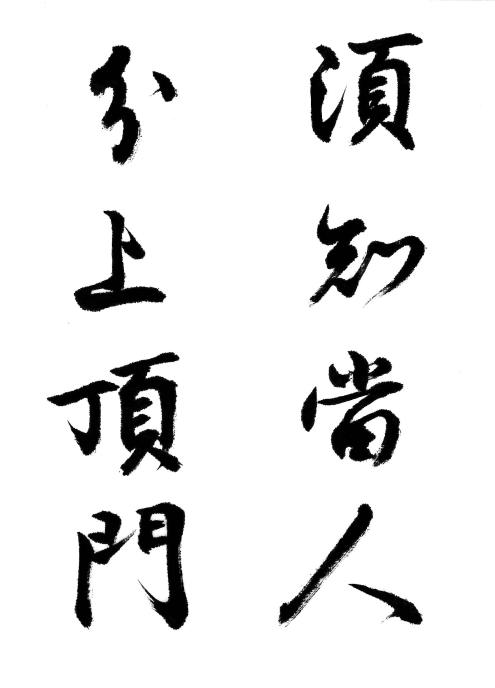 須知當人
分上頂門